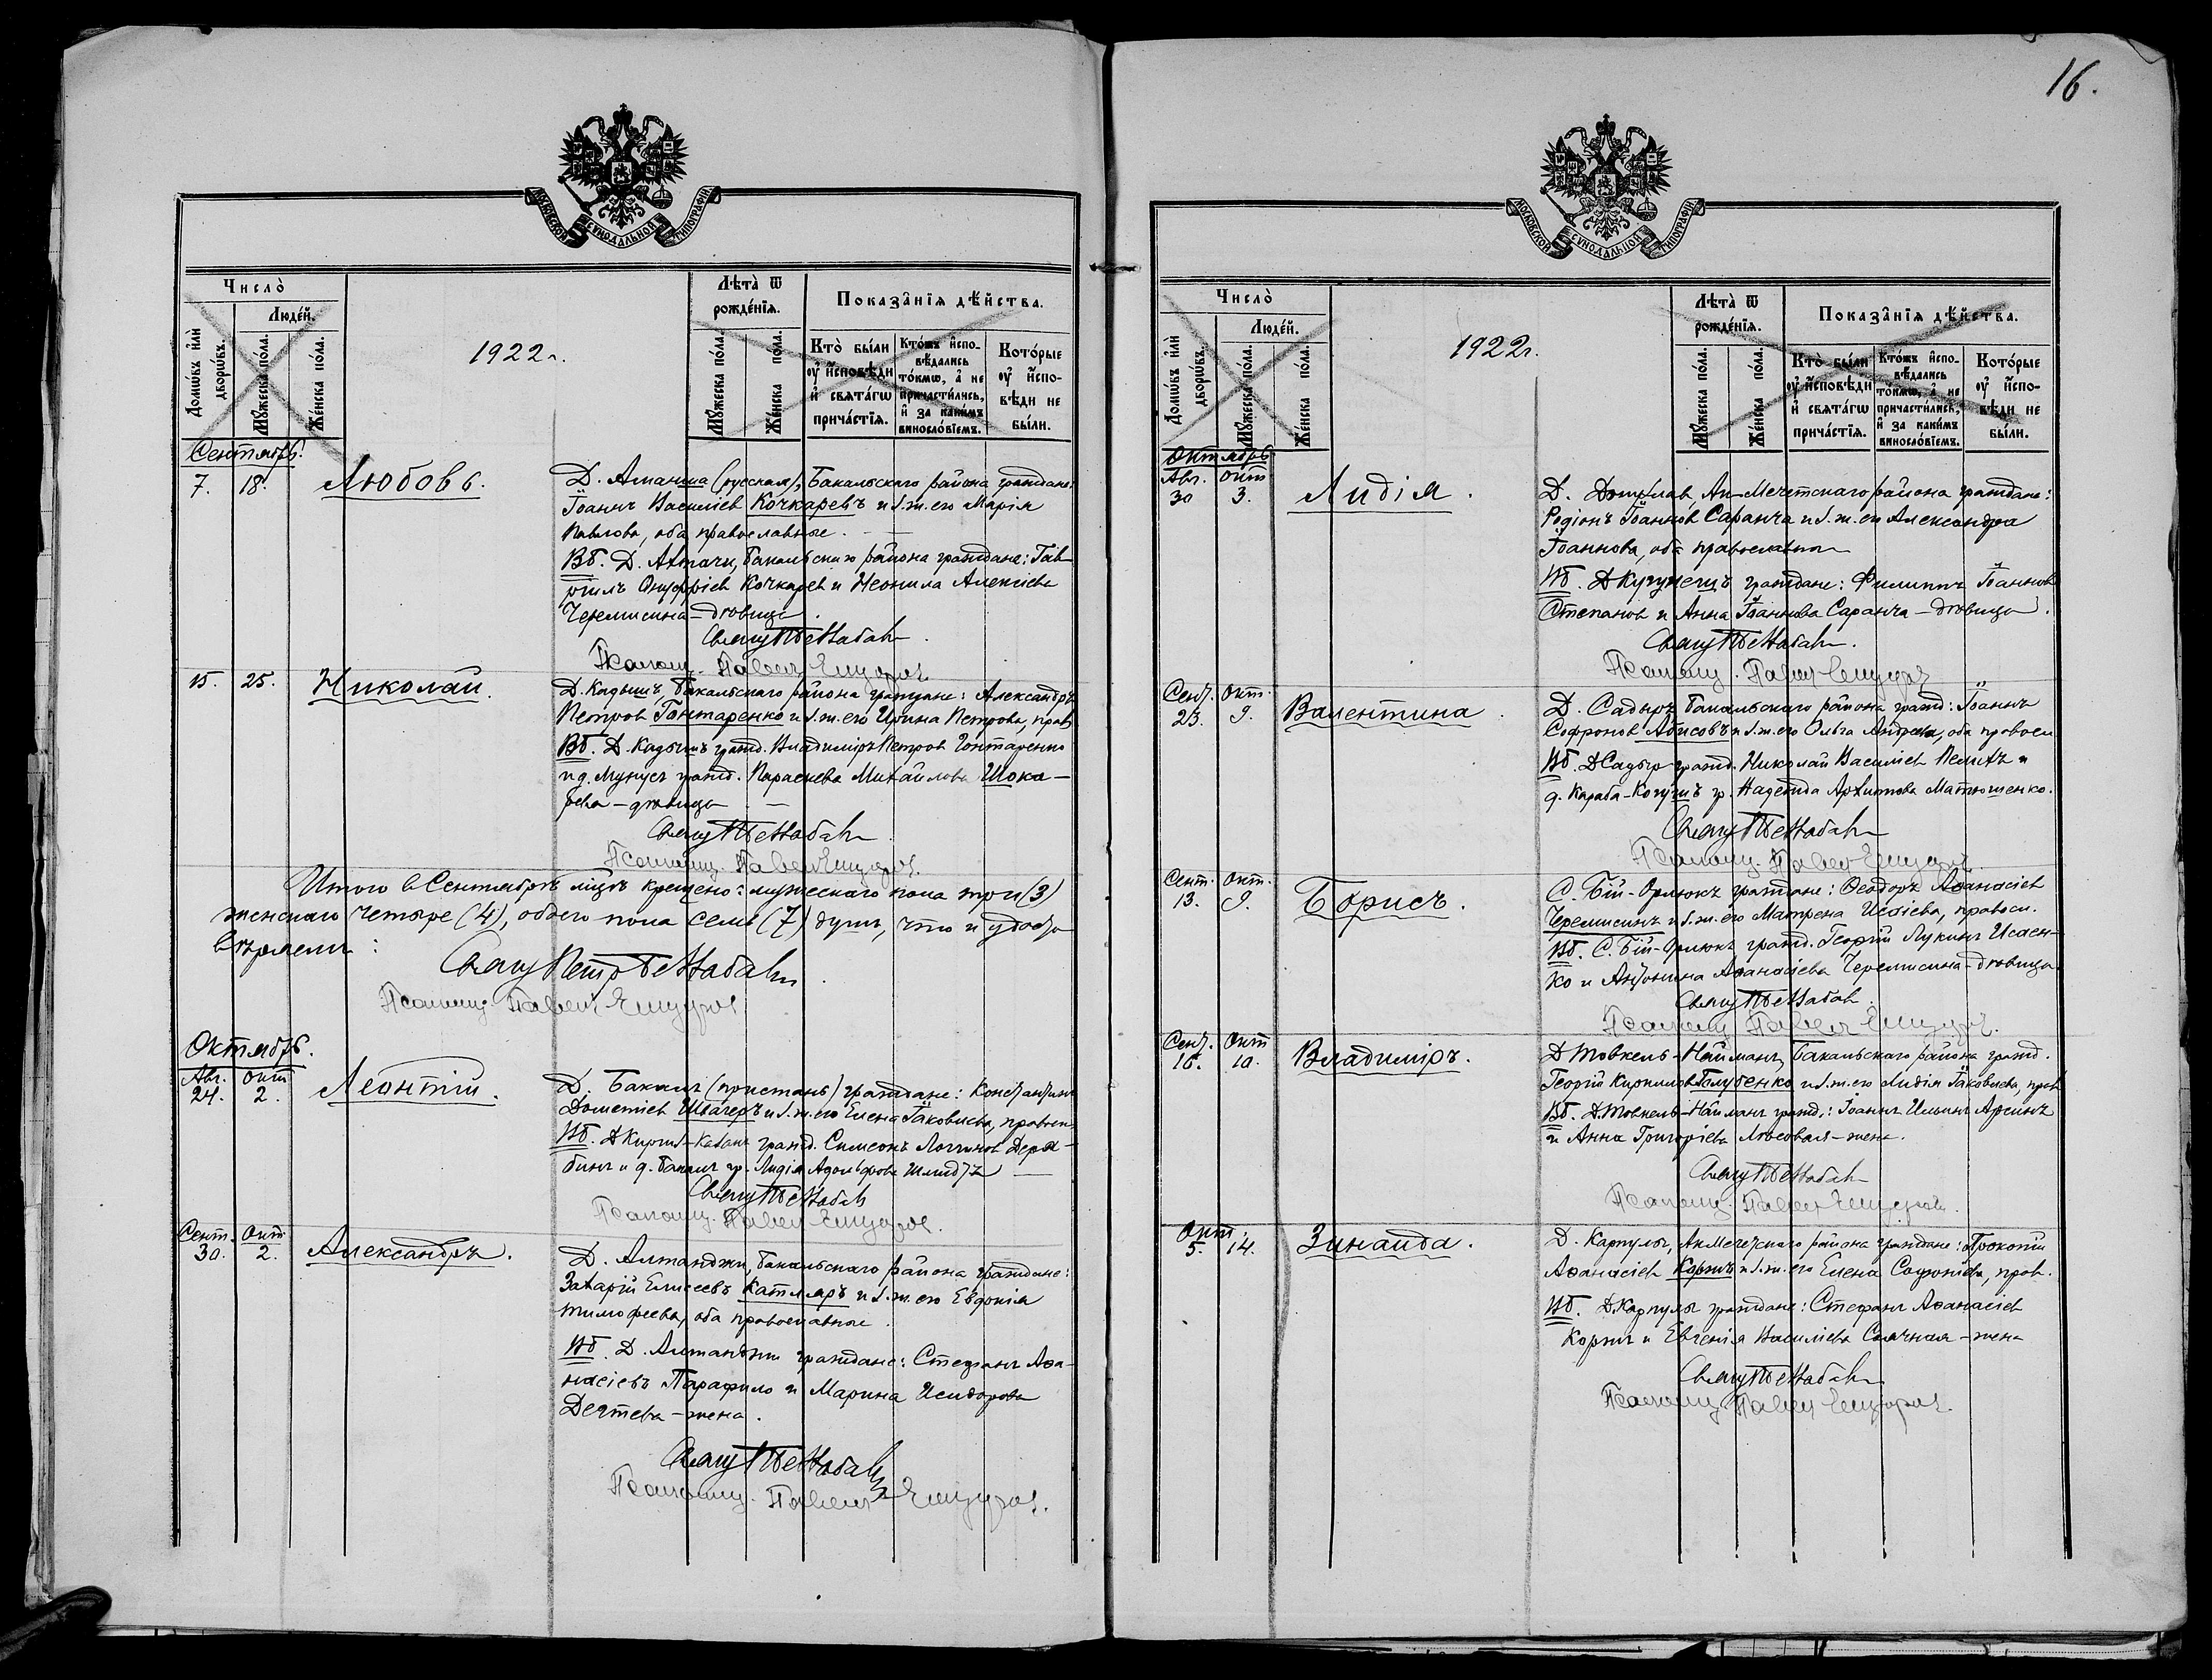 16.
МОСКОВСКОЙ СѴНОДАЛЬНОЙ ТИПОГРАФІИ
Число̀
Домѡ́въ и҆лѝ дворѡ́въ.
Люде́й.
Мꙋ́жеска по́ла.
Же́нска по́ла.
1922 г.
Лѣта̀ ѿ рожде́нїѧ.
Мꙋ́жеска по́ла.
Же́нска по́ла.
Показа̑нїѧ дѣ́йства.
Кто̀ бы́ли ᲂу҆ и҆сповѣди и҆ свѧта́гѡ прича́стїѧ.
Кто́жъ и҆сповѣ́дались то́кмѡ, а҆ не причасти́лись, и҆ за каки́мъ винесло́вїемъ.
Кото́рые ᲂу҆ и҆сповѣди не бы́ли.
Сентябрь.
7. 18. Любовь.
Д. Аманша (русская), Бакальскаго района граждане:
Іоаннъ Василіев Кочкаревъ и з.ж. его Марія
Павлова, оба православные.
Вб. Д. Атачи, Бакальскаго района граждане: Гав-
риилъ Онуфріев Кочкарев и Неонила Алексіева
Черемисина - дѣвица.
Псаломщ. Павел
15. 25. Николай.
Д. Кадышъ, Бакальскаго района граждане: Александръ
Петров Гонтаренко и з.ж. его Ирина Петрова, прав.
Вб. Д. Кадышъ гражд. Владиміръ Петров Гонтаренко
и д. Мунусъ гражд. Параскева Михайлова Шока-
рева - дѣвица -
Псаломщ. Павел
Итого в Сентябрѣ мцѣ крещено: мужескаго пола три (3)
женскаго четыре (4), обоего пола семь (7) душъ, что и удосто
вѣряемъ:
Свящ Петр
Псаломщ. Павел
Октябрь.
Авг. Окт.
24. 2. Леонтій.
Д. Бакалъ (пристань) граждане: Константин
Дометіев Швагеръ и з.ж. его Елена Іаковлева, правосл
Вб. Д Киргиз-Казакъ гражд. Симеонъ Логгинов Деря-
бинъ и д. Бакалъ гр. Лидія Адольфова Шмидтъ
Псаломщ. Павел
Сент. Окт.
30. 2. Александръ.
Д. Алманджи, Бакальскаго района граждане:
Захарій Елисеевъ Катляръ и з.ж. его Евдокія
Тимофеева, оба православные.
Вб. Д. Алманджи граждане: Стефанъ Аѳа-
насіевъ Парафило и Марина Исидорова
Дегтева - жена.
Псаломщ. Павел
МОСКОВСКОЙ СѴНОДАЛЬНОЙ ТИПОГРАФІИ
Число̀
Домѡ́въ и҆лѝ дворѡ́въ.
Люде́й.
Мꙋ́жеска по́ла.
Же́нска по́ла.
1922 г.
Лѣта̀ ѿ рожде́нїѧ.
Мꙋ́жеска по́ла.
Же́нска по́ла.
Показа̑нїѧ дѣ́йства.
Кто̀ бы́ли ᲂу҆ и҆сповѣди и҆ свѧта́гѡ прича́стїѧ.
Кто́жъ и҆сповѣ́дались то́кмѡ, а҆ не причасти́лись, и҆ за каки́мъ винесло́вїемъ.
Кото́рые ᲂу҆ и҆сповѣди не бы́ли.
Октябрь
Авг. Окт
30 3. Лидія.
Д. Ак-Мечетскаго района граждане:
Родіонъ Іоаннов Саранча и з.ж. его Александра
Іоаннова, оба православны
Вб. граждане: Филиппъ Іоаннов
Степанов и Анна Іоаннова Саранча - дѣвица.
Псаломщ. Павел
Сент. Окт.
23. 9. Валентина.
Д. Садыръ Бакальскаго района гражд: Іоаннъ
Софронов Абисовъ и з.ж. его Ольга Андреева, оба правосл
Вб. Д Садыр гражд. Николай Василіев Пелихъ и
д. Караба-Когушъ гр. Надежда Архипова Матюшенко.
Псаломщ. Павел
Сент. Окт.
13. 9. Борисъ.
С. Бій-Орлюкъ граждане: Ѳеодоръ Аѳанасіев
Черемисинъ и з.ж. его Матрена Исаіева, правосл.
Вб. С. Бій-Орлюкъ гражд. Георгій Лукинъ Исаен-
ко и Антонина Аѳанасіева Черемисина - дѣвица
Псаломщ. Павел
Сент. Окт
16. 10. Владиміръ.
Д Товкель-Найманъ, Бакальскаго района гражд.
Георгій Кириллов Голубенко и з.ж. его Лидія Іаковлева, прав
Вб. Д. Товкель-Найманъ гражд.: Іоаннъ Ильинъ
и Анна Григоріева Лозовая - жена.
Псаломщ. Павел
Окт.
5. 14. Зинаида.
Д. Карпулы, Ак Мечетскаго района граждане: Прокопій
Аѳанасіев Коржъ и з.ж. его Елена Софоніева, прав.
Вб. Д. Карпулы граждане: Стефанъ Аѳанасіев
Коржъ и Евгенія Василіева Смачная - жена
Псаломщ. Павел